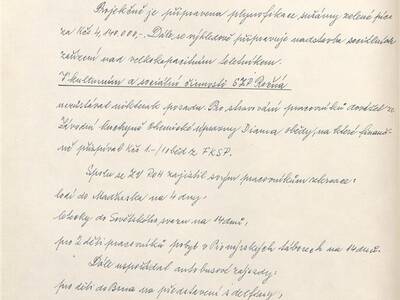 Projekčně je připravena plynofikace sušárny zelené píce
za Kčs 4,140.000,-. Dále se výhledově připravuje nadstavba sociálních
zařízení nad velkokapacitním teletníkem.
V kulturním a sociální činnosti SZP Rožná
nezůstával nikterak pozadu. Pro stravování pracovníků dovážel ze
Závodní kuchyně Chemické úpravny Diama obědy, na které finanč-
ně přispíval Kčs 1.-/1 oběd z FKSP.
Spolu se ZV ROH zajistil svým pracovníkům rekreace:
lodí do Maďarska na 4 dny,
letecky do Sovětského svazu na 14 dnů,
pro 2 děti pracovníků pobyt v Pionýrských táborech na 14 dnů.
Dále uspořádal autobusové zájezdy:
pro děti do Brna na představení s delfíny,